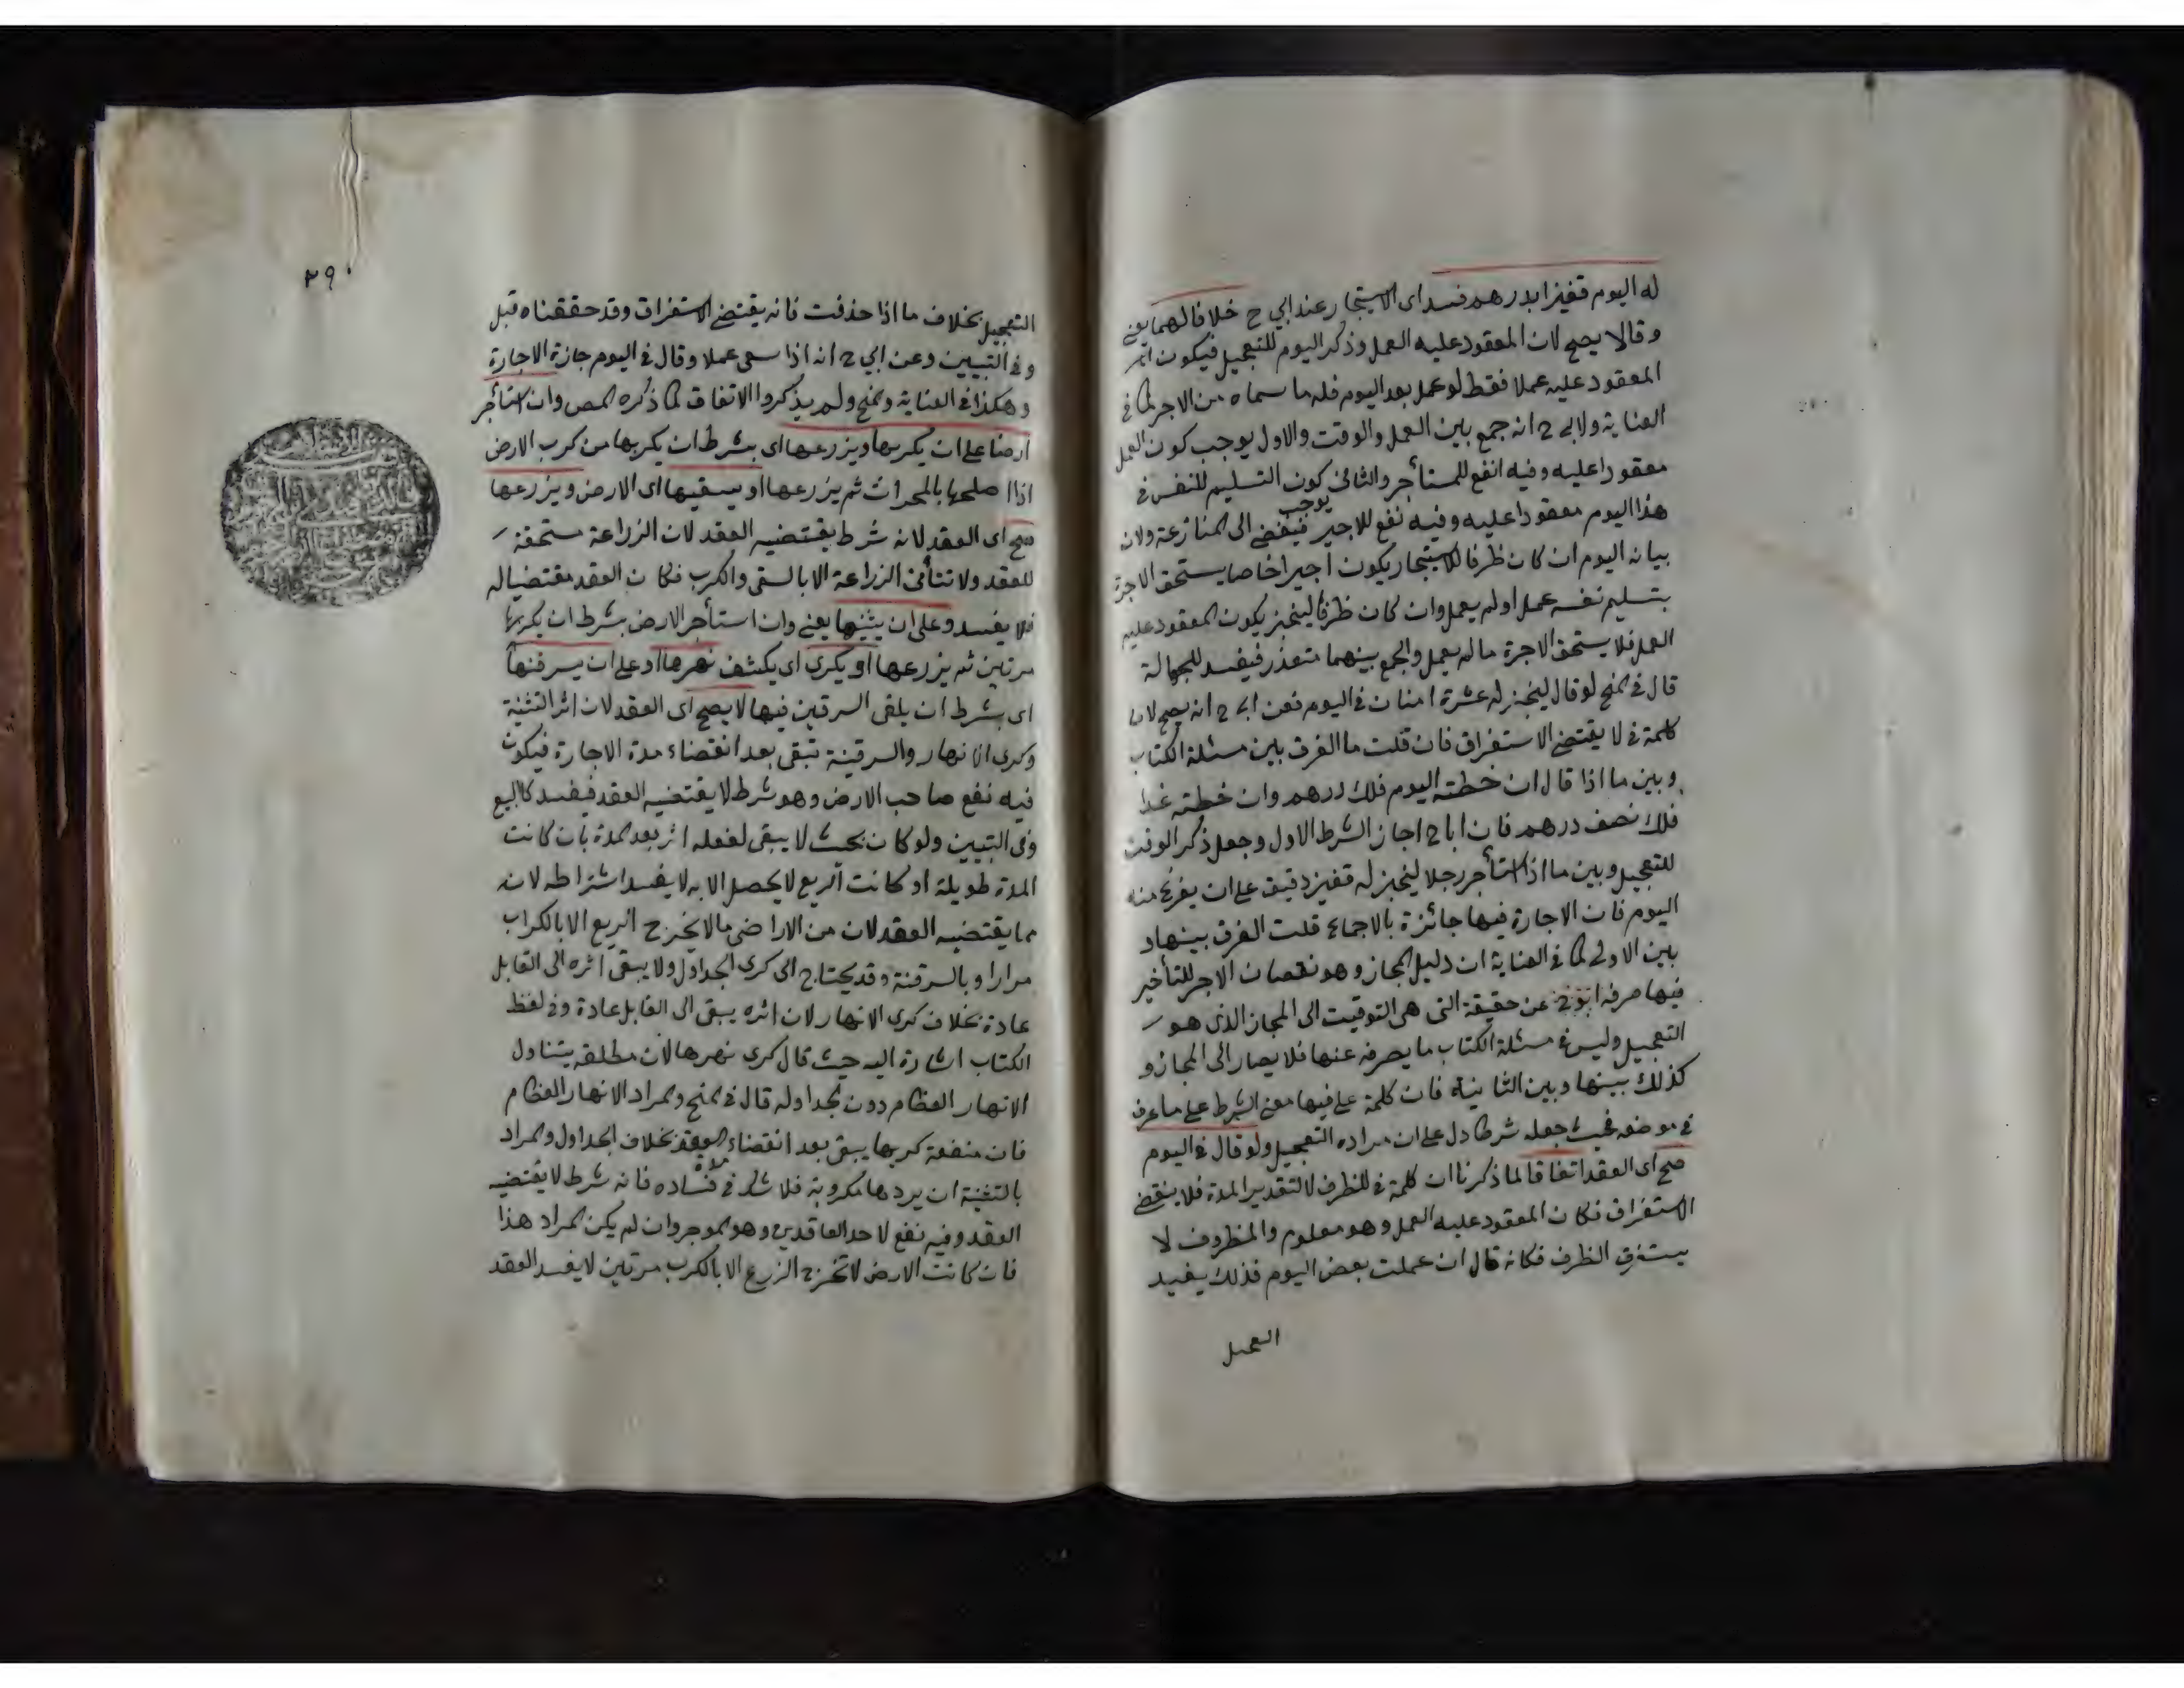 له اليوم قفيزا بدرهم فسد اى الاستيجار عند ابي ح خلافا لهما يعنى
وقالا يصح لان المعقود عليه العمل وذكر اليوم للتعجيل فيكون
المعقود عليه عملا فقط لو عمل بعد اليوم فله ما سماه من الاجر كما في
العناية ولابي ح انه جمع بين العمل والوقت والاول يوجب كون العمل
معقودا عليه وفيه انفع للمستأجر والثاني يوجب كون التسليم للنفس في
هذا اليوم معقودا عليه وفيه نفع للاجير فيفضى الى المنازعة ولان
بيانه اليوم ان كان ظرفا للاستيجار يكون اجيرا خاصا يستحق الاجرة
بتسليم نفسه عمل او لم يعمل وان كان ظرفا ليخبز يكون المعقود عليه
العمل فلا يستحق الاجرة ما لم يعمل والجمع بينهما متعذر فيفسد للجهالة
قال في المنح لو قال ليخبز له عشرة امنان في اليوم فعن ابي ح انه يصح لان
كلمة في لا يقتضى الاستغراق فان قلت ما الفرق بين مسئلة الكتاب
وبين ما اذا قال ان خطته اليوم فلك درهم وان خطته غدا
فلك نصف درهم فان ابا ح اجاز الشرط الاول وجعل ذكر الوقت
للتعجيل وبين ما اذا استأجر رجلا ليخبز له قفيز دقيق على ان يفرغ منه
اليوم فان الاجارة فيها جائزة بالاجماع قلت الفرق بينها و
بين الاولى كما في العناية ان دليل المجاز وهو نقصان الاجر للتأخير
فيها صرفه عن حقيقة التى هى التوقيت الى المجاز الذى هو
التعجيل وليس في مسئلة الكتاب ما يصرفه عنها فلا يصار الى المجاز و
كذلك بينها وبين الثانية فان كلمة على فيها معنى الشرط على ما عرف
في موضعه فحيث جعله شرطا دل على ان مراده التعجيل ولو قال في اليوم
صح اى العقد اتفاقا لما ذكرنا ان كلمة في للظرف لا لتقدير المدة فلا يقتضى
الاستغراق فكان المعقود عليه العمل وهو معلوم والمظروف لا
يستغرق الظرف فكانه قال ان عملت بعض اليوم فذلك يفيد
التعجيل
٣٩٠
التعجيل بخلاف ما اذا حذفت فانه يقتضى الاستغراق وقد حققناه قبل
وفي التبيين وعن ابي ح انه اذا سمى عملا وقال في اليوم جازة الاجارة
وهكذا في العناية والمنح ولم يذكروا الاتفاق كما ذكره المص وان استأجر
ارضا على ان يكربها ويزرعها اى بشرط ان يكربها من كرب الارض
اذا اصلحها بالمحراث ثم يزرعها او يسقيها اى الارض ويزرعها
صح اى العقد لانه شرط يقتضيه العقد لان الزراعة مستحقة
للعقد ولا تتأتى الزراعة الا بالسقى والكرب فكان العقد مقتضيا له
فلا يفسد وعلى ان يثنيها يعنى وان استأجر الارض بشرط ان يكربها
مرتين ثم يزرعها او يكرى اى يكشف نهرها او على ان يسرقنها
اى بشرط ان يلقى السرقين فيها لا يصح اى العقد لان اثر التثنية
وكرى الانهار والسرقنة تبقى بعد انقضاء مدة الاجارة فيكون
فيه نفع صاحب الارض وهو شرط لا يقتضيه العقد فيفسد كالبيع
وفى التبيين ولو كان بحيث لا يبقى لفعله اثر بعد المدة بان كانت
المدة طويلة او كانت الريع لا يحصل الا به لا يفسد اشتراطه لانه
مما يقتضيه العقد لان من الاراضى ما لا يخرج الريع الا بالكراب
مرارا وبالسرقنة وقد يحتاج الى كرى الجداول ولا يبقى اثره الى القابل
عادة بخلاف كرى الانهار لان اثره يبقى الى القابل عادة وفي لفظ
الكتاب اشارة اليه حيث قال كرى نهرها لان مطلقه يتناول
الانهار العظام دون الجداول قال في المنح والمراد الانهار العظام
فان منفعة كربها يبقى بعد انقضاء العقد بخلاف الجداول والمراد
بالتثنية ان يردها مكروبة فلا شك في فساده فانه شرط لا يقتضيه
العقد وفيه نفع لاحد العاقدين وهو الموجر وان لم يكن المراد هذا
فان كانت الارض لا تخرج الزرع الا بالكرب مرتين لا يفسد العقد